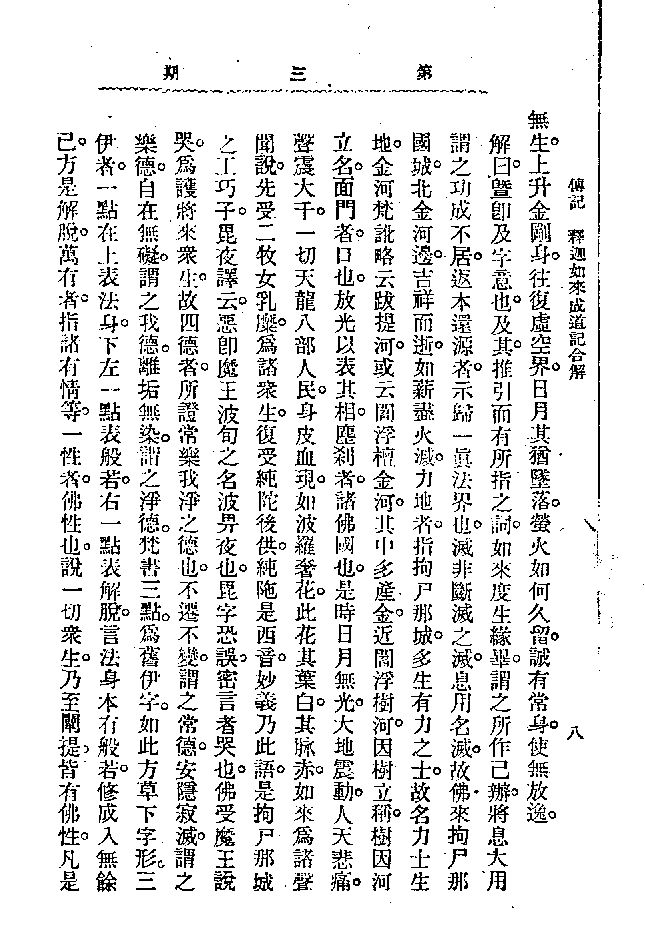 第三期
傳記 釋迦如來成道記合解 八
無生。上升金剛身。往復虛空界。日月其猶墜落。螢火如何久留。誠有常身。使無放逸。
解曰。曁卽及字意也。及其。推引而有所指之詞。如來度生緣畢。謂之所作已辦。將息大用
謂之功成不居。返本還源者。示歸一眞法界也。滅非斷滅之滅。息用名滅。故佛來拘尸那
國城。北金河邊。吉祥而逝。如薪盡火滅。力地者。指拘尸那城。多生有力之士。故名力士生
地。金河梵訛略云跋提河。或云閻浮檀金河。其中多產金。近閻浮樹河。因樹立稱。樹因河
立名。面門者。口也。放光以表其相。塵刹者。諸佛國也。是時日月無光。大地震動。人天悲痛。
聲震大千。一切天龍八部人民。身皮血現。如波羅奢花。此花其葉白。其脈赤。如來爲諸聲
聞說。先受二牧女乳糜。爲諸衆生。復受純陀後供。純陁是西音。妙義乃此語。是拘尸那城
之工巧子。毘夜譯云惡。卽魔王波旬之名。波畀夜也。毘字恐誤。密言者。哭也。佛受魔王說
哭。爲護將來衆生。故四德者。所證常樂我淨之德也。不遷不變。謂之常德。安隱寂滅。謂之
樂德。自在無礙。謂之我德。離垢無染。謂之淨德。梵書三點。爲舊伊字。如此方草下字形。三
伊者。一點在上。表法身。下左一點表般若。右一點表解脫。言法身本有。般若修成。入無餘
已。方是解脫。萬有者。指諸有情等。一性者。佛性也。說一切衆生。乃至闡提。皆有佛性。凡是